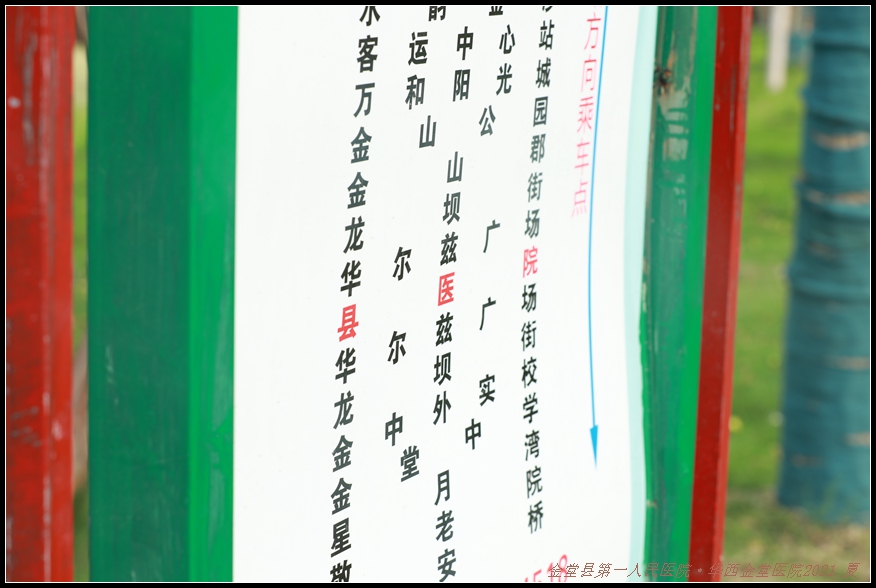 水韵金
客运中心站
万和阳光城
金山公园
金山郡
龙坝街
华尔兹广场
县医院
华尔兹广场
龙坝街
金中外实校
金堂中学
星月湾
敬老院
安桥
方向乘车点
金堂县第一人民医院·华西金堂医院2021 夏